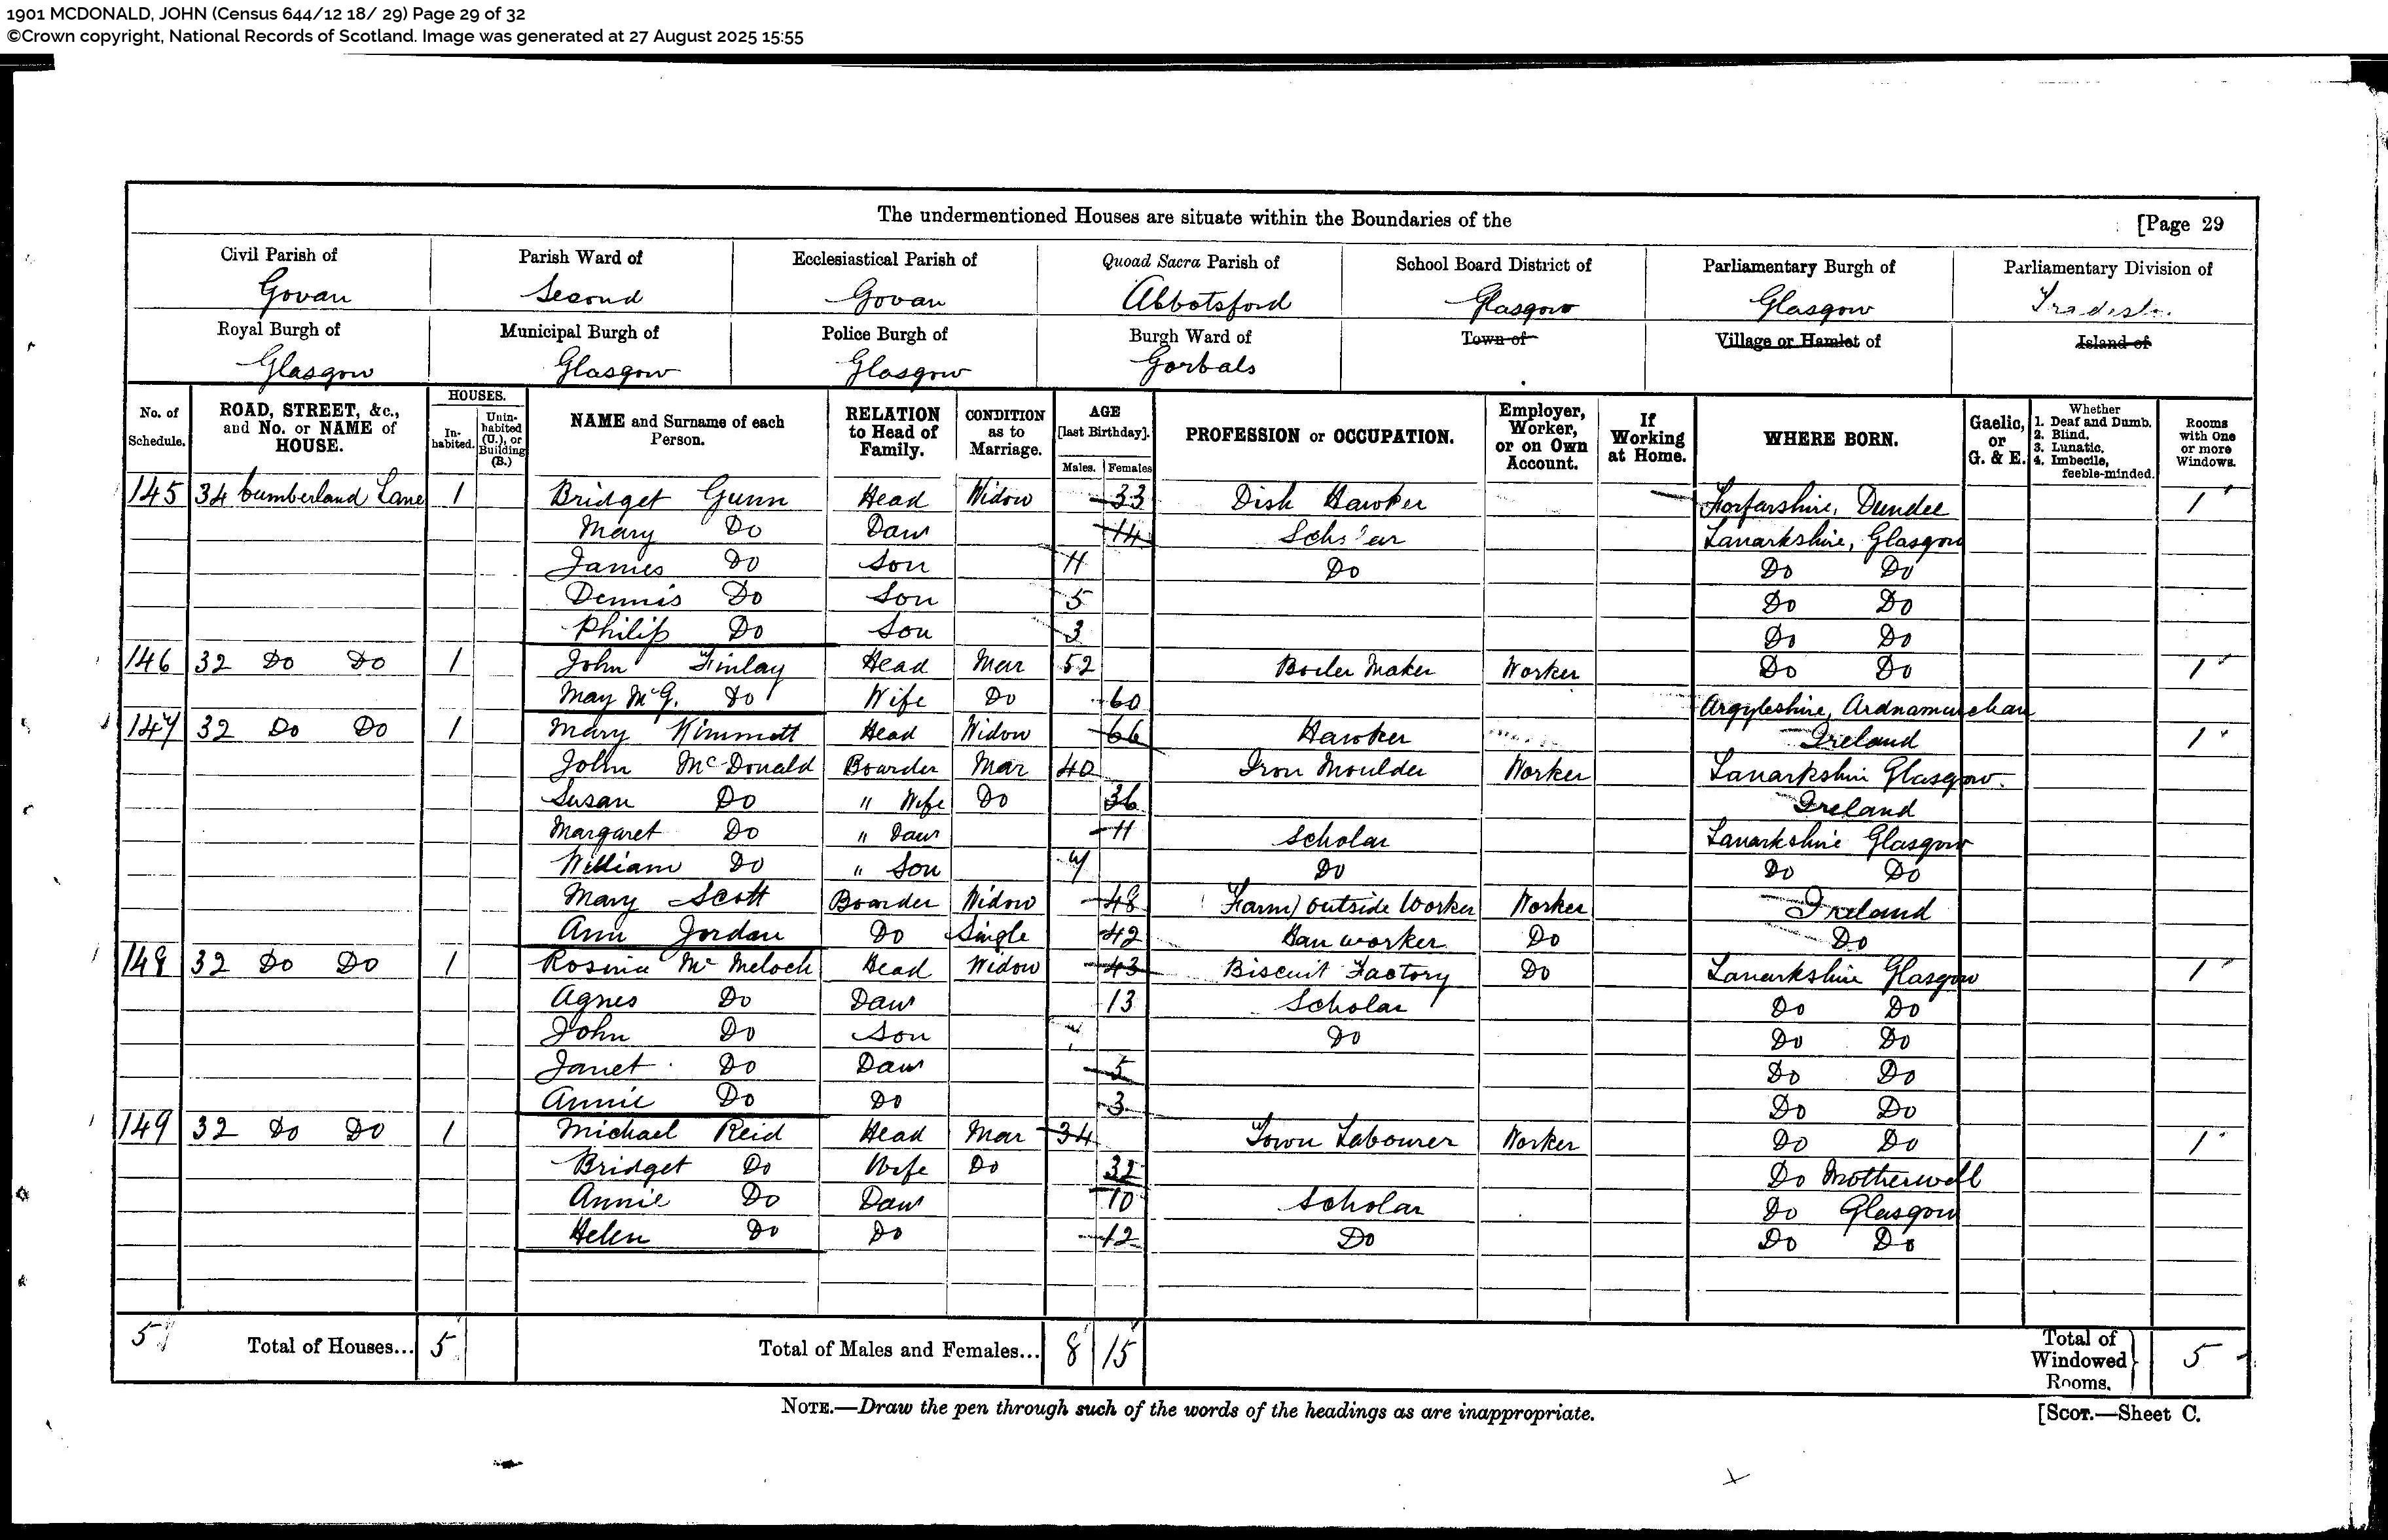 1901 MCDONALD, JOHN (Census 644/12 18/ 29) Page 29 of 32
©Crown copyright, National Records of Scotland. Image was generated at 27 August 2025 15:55
The undermentioned Houses are situate within the Boundaries of the [Page 29
Civil Parish of Parish Ward of Ecclesiastical Parish of Quoad Sacra Parish of School Board District of Parliamentary Burgh of Parliamentary Division of
Govan Second Govan Abbotsford Glasgow Glasgow
Royal Burgh of Municipal Burgh of Police Burgh of Burgh Ward of Town of Village or Hamlet of Island of
Glasgow Glasgow Glasgow Gorbals
No. of Schedule. ROAD, STREET, &c., and No. or NAME of HOUSE. HOUSES. Inhabited. Uninhabited (U.), or Building (B.) NAME and Surname of each Person. RELATION to Head of Family. CONDITION as to Marriage. AGE [last Birthday]. Males. Females PROFESSION or OCCUPATION. Employer, Worker, or on Own Account. If Working at Home. WHERE BORN. Gaelic, or G. & E. Whether 1. Deaf and Dumb. 2. Blind. 3. Lunatic. 4. Imbecile, feeble-minded. Rooms with One or more Windows.
145 34 Cumberland Lane 1 Bridget Gunn Head Widow 33 Dish Hawker Forfarshire, Dundee 1
Mary Do Daur 14 Lanarkshire, Glasgow
James Do Son 11 Do Do Do
Dennis Do Son 5 Do Do
Philip Do Son 3 Do Do
146 32 Do Do 1 John Finlay Head Mar 52 Boiler Maker Worker Do Do 1
May McG. Do Wife Do 60 Argyleshire, Ardnamurchan
147 32 Do Do 1 Mary Kimmett Head Widow 66 Hawker Ireland 1
John McDonald Boarder Mar 40 Iron Moulder Worker Lanarkshire Glasgow
Susan Do " Wife Do 36 Ireland
Margaret Do " Daur 11 Scholar Lanarkshire Glasgow
William Do " Son 7 Do Do Do
Mary Scott Boarder Widow 48 Farm) outside Worker Worker Ireland
Ann Jordan Do Single 42 worker Do Do
148 32 Do Do 1 Rosina Head Widow 43 Biscuit Factory Do Lanarkshire Glasgow 1
Agnes Do Daur 13 Scholar Do Do
John Do Son Do Do Do
Janet Do Daur 5 Do Do
Annie Do Do 3 Do Do
149 32 Do Do 1 Michael Reid Head Mar 34 Town Labourer Worker Do Do 1
Bridget Do Wife Do 32 Do Motherwell
Annie Do Daur 10 Scholar Do Glasgow
Helen Do Do 12 Do Do Do
5 Total of Houses... 5 Total of Males and Females... 8 15 Total of Windowed Rooms. 5
NOTE.—Draw the pen through such of the words of the headings as are inappropriate. [SCOT.—Sheet C.